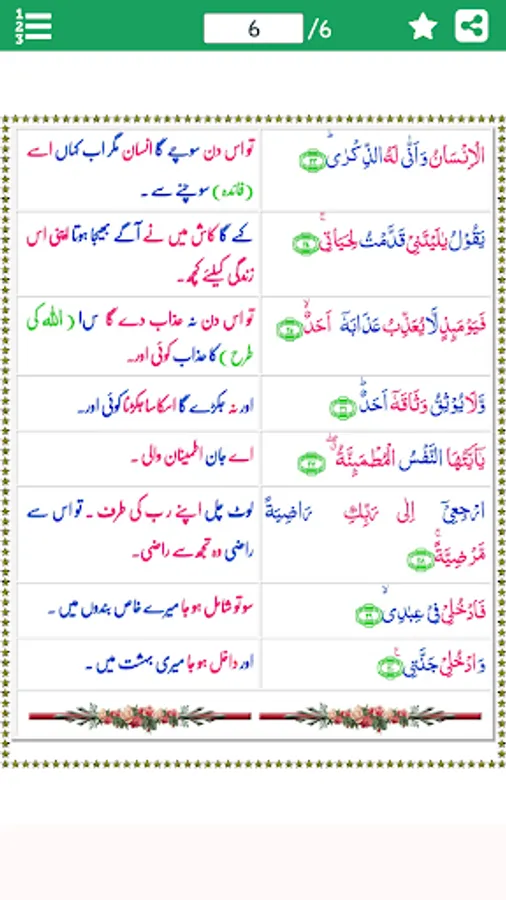 6 /6
الْاِنْسَانُ وَاَنّٰى لَهُ الذِّكْرٰىؕ ﴿۲۳﴾
تو اس دن سوچے گا انسان مگر اب کہاں اسے
(فائدہ) سوچنے سے ۔
یَقُوْلُ یٰلَیْتَنِیْ قَدَّمْتُ لِحَیَاتِیْۚ ﴿۲۴﴾
کہے گا کاش میں نے آگے بھیجا ہوتا اپنی اس
زندگی کیلئے کچھ۔
فَیَوْمَىِٕذٍ لَّا یُعَذِّبُ عَذَابَهٗۤ اَحَدٌۙ ﴿۲۵﴾
تو اس دن نہ عذاب دے گا سا (اللہ کی
طرح) کا عذاب کوئی اور۔
وَّلَا یُوْثِقُ وَثَاقَهٗۤ اَحَدٌؕ ﴿۲۶﴾
اور نہ جکڑے گا اسکا سا جکڑنا کوئی اور۔
یٰۤاَیَّتُهَا النَّفْسُ الْمُطْمَىِٕنَّةُۗۖ ﴿۲۷﴾
اے جان اطمینان والی ۔
ارْجِعِیْۤ اِلٰى رَبِّكِ رَاضِیَةً
مَّرْضِیَّةًۚ ﴿۲۸﴾
لوٹ چل اپنے رب کی طرف ۔ تو اس سے
راضی وہ تجھ سے راضی۔
فَادْخُلِیْ فِیْ عِبٰدِیْۙ ﴿۲۹﴾
سو تو شامل ہو جا میرے خاص بندوں میں ۔
وَادْخُلِیْ جَنَّتِیْ۠ ﴿۳۰﴾
اور داخل ہو جا میری بہشت میں ۔